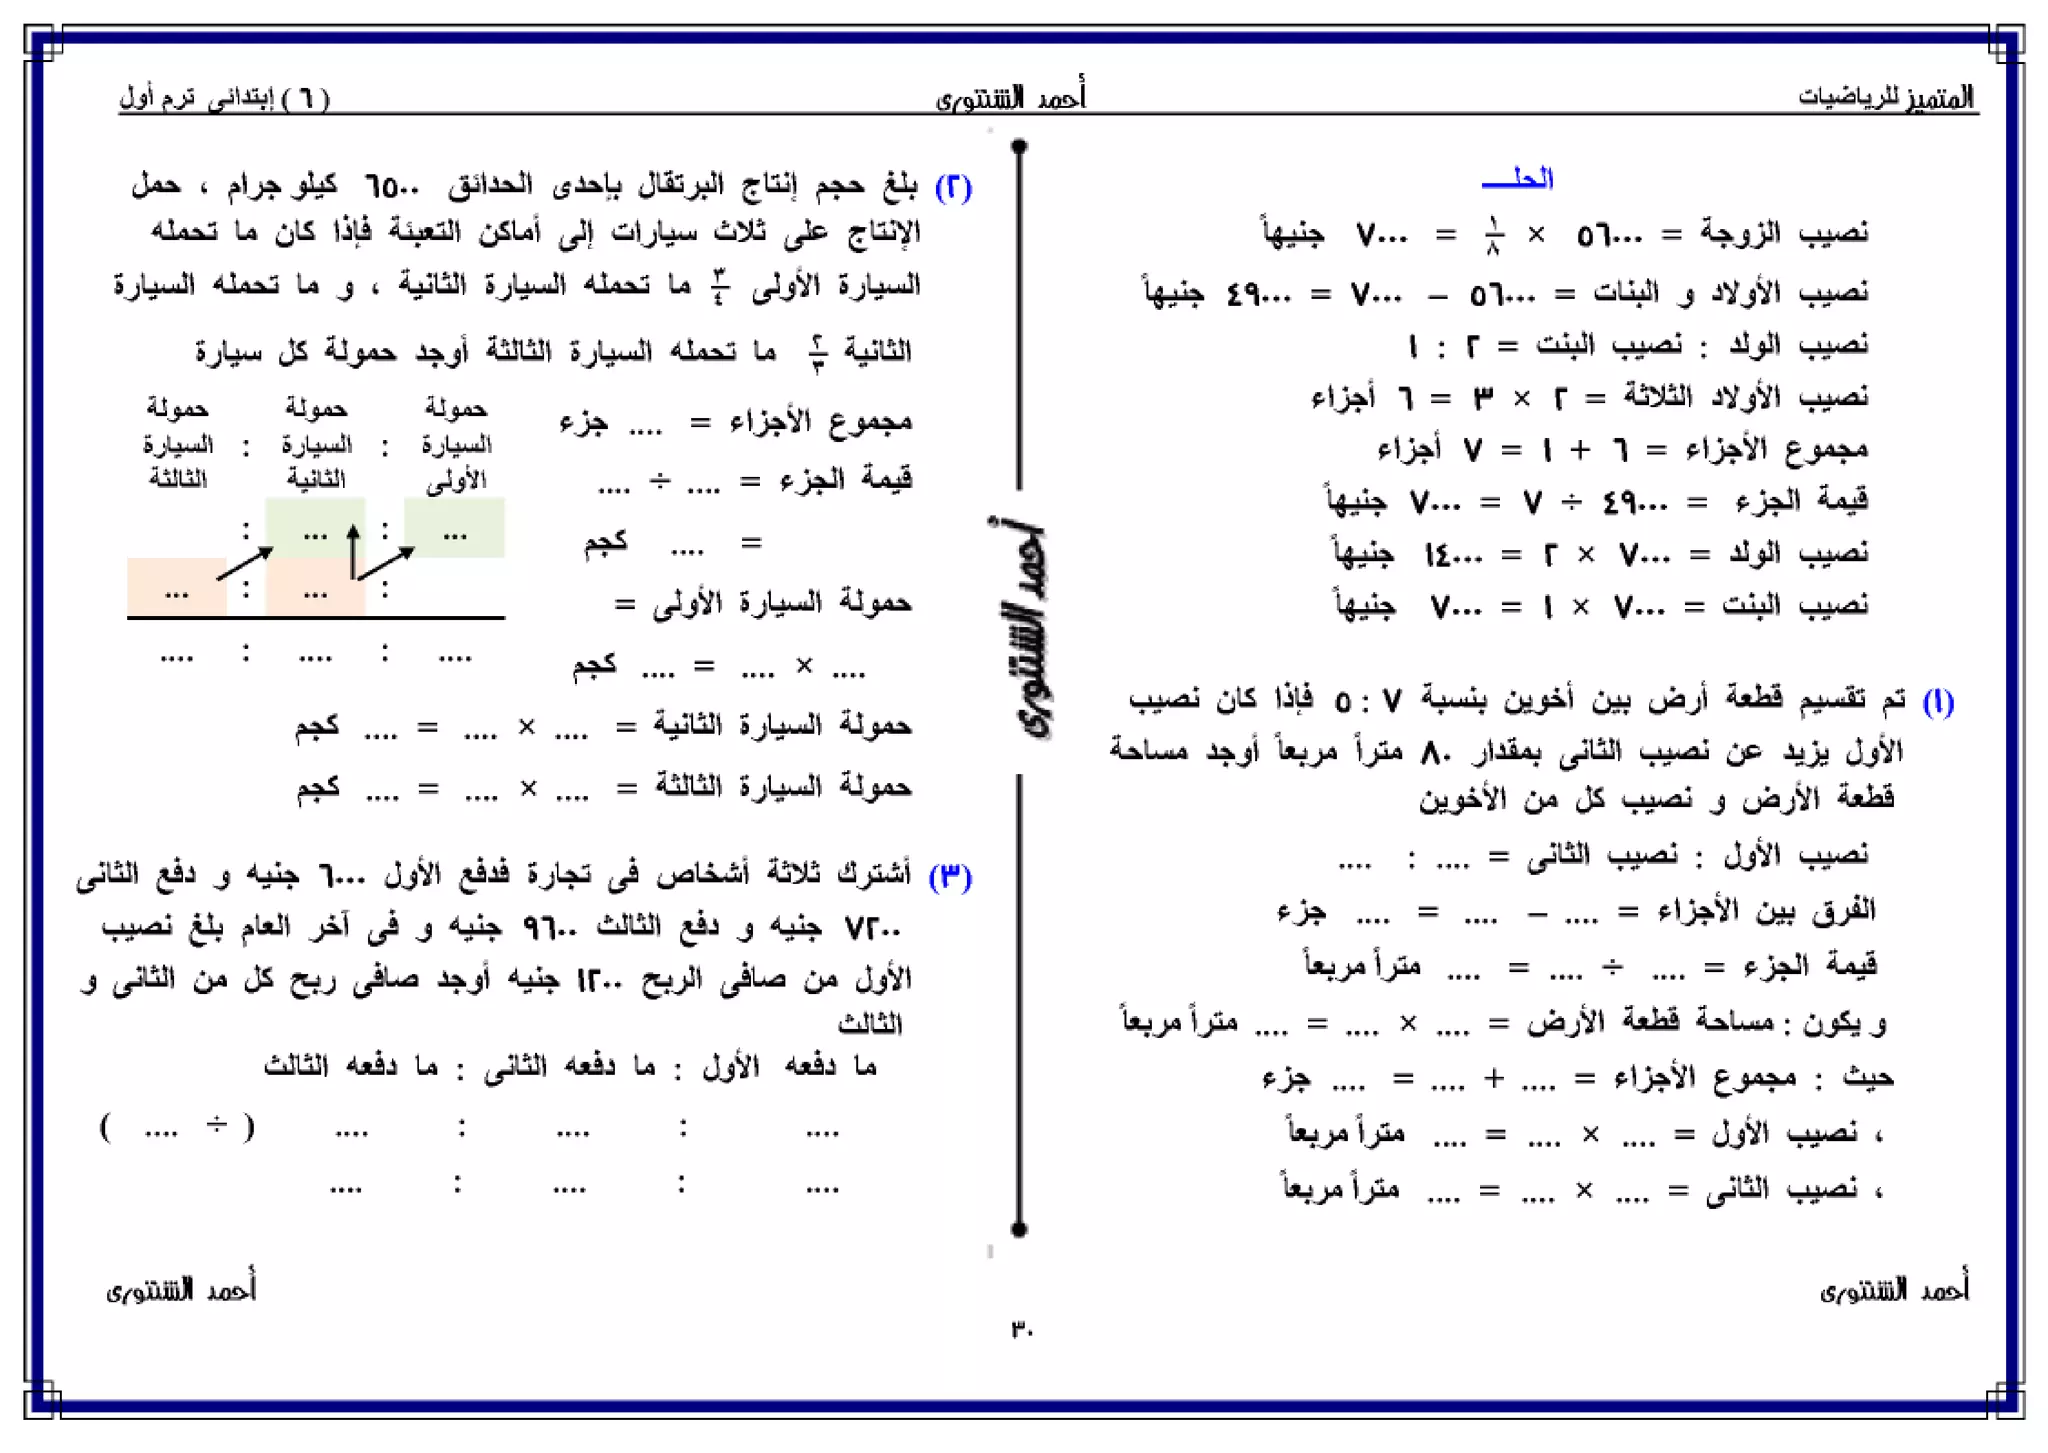 المتميز للرياضيات
أحمد الشنتورى
( ٦ ) إبتدائى ترم أول
الحلــــ
نصيب الزوجة = ٥٦٠٠٠ × ١/٨ = ٧٠٠٠ جنيهاً
نصيب الأولاد و البنات = ٥٦٠٠٠ – ٧٠٠٠ = ٤٩٠٠٠ جنيهاً
نصيب الولد : نصيب البنت = ٢ : ١
نصيب الأولاد الثلاثة = ٢ × ٣ = ٦ أجزاء
مجموع الأجزاء = ٦ + ١ = ٧ أجزاء
قيمة الجزء = ٤٩٠٠٠ ÷ ٧ = ٧٠٠٠ جنيهاً
نصيب الولد = ٧٠٠٠ × ٢ = ١٤٠٠٠ جنيهاً
نصيب البنت = ٧٠٠٠ × ١ = ٧٠٠٠ جنيهاً
(١) تم تقسيم قطعة أرض بين أخوين بنسبة ٧ : ٥ فإذا كان نصيب
الأول يزيد عن نصيب الثانى بمقدار ٨٠ متراً مربعاً أوجد مساحة
قطعة الأرض و نصيب كل من الأخوين
نصيب الأول : نصيب الثانى = .... : ....
الفرق بين الأجزاء = .... – .... = .... جزء
قيمة الجزء = .... ÷ .... = .... متراً مربعاً
و يكون : مساحة قطعة الأرض = .... × .... = .... متراً مربعاً
حيث : مجموع الأجزاء = .... + .... = .... جزء
، نصيب الأول = .... × .... = .... متراً مربعاً
، نصيب الثانى = .... × .... = .... متراً مربعاً
أحمد الشنتورى
(٢) بلغ حجم إنتاج البرتقال بإحدى الحدائق ٦٥٠٠ كيلو جرام ، حمل
الإنتاج على ثلاث سيارات إلى أماكن التعبئة فإذا كان ما تحمله
السيارة الأولى ٣/٤ ما تحمله السيارة الثانية ، و ما تحمله السيارة
الثانية ٢/٣ ما تحمله السيارة الثالثة أوجد حمولة كل سيارة
مجموع الأجزاء = .... جزء
قيمة الجزء = .... ÷ ....
= .... كجم
حمولة السيارة الأولى =
.... × .... = .... كجم
حمولة حمولة حمولة
السيارة : السيارة : السيارة
الأولى الثانية الثالثة
... : ... :
: ... : ...
.... : .... : ....
حمولة السيارة الثانية = .... × .... = .... كجم
حمولة السيارة الثالثة = .... × .... = .... كجم
(٣) أشترك ثلاثة أشخاص فى تجارة فدفع الأول ٦٠٠٠ جنيه و دفع الثانى
٧٢٠٠ جنيه و دفع الثالث ٩٦٠٠ جنيه و فى آخر العام بلغ نصيب
الأول من صافى الربح ١٢٠٠ جنيه أوجد صافى ربح كل من الثانى و
الثالث
ما دفعه الأول : ما دفعه الثانى : ما دفعه الثالث
.... : .... : .... ( ÷ .... )
.... : .... : ....
أحمد الشنتورى
أحمد الشنتورى
٣٠